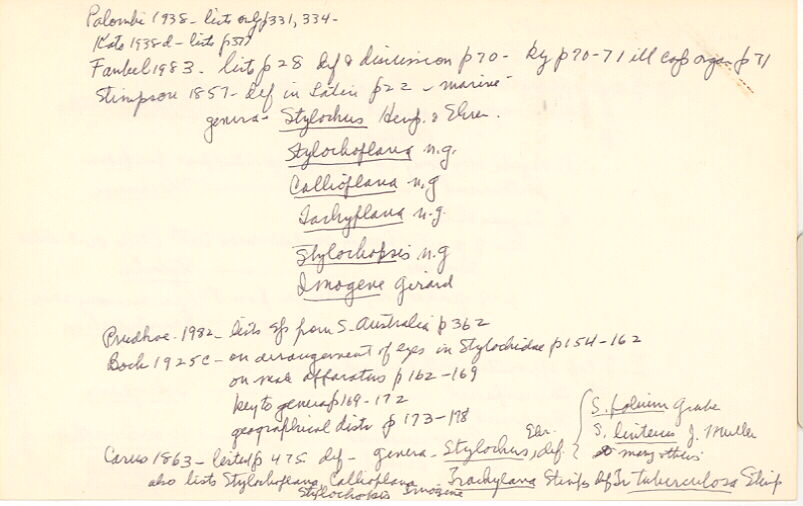 Palombi 1938 - lists only p331, 334 -
Kato 1938d - lists p577
Faubel 1983 - lists p28 def & discussion p70 - key p70-71 ill cop organ p71
Stimpson 1857 - Def in Latin p22 - marine -
genera - Stylochus Hemp. & Ehren.
Stylochoplana n.g.
Callioplana n.g
Trachyplana n.g.
Stylochopsis n.g
Imogene Girard
Prudhoe 1982 - lists sps from S. Australia p362
Bock 1925c - on arrangement of eyes in Stylochidae p154-162
on male apparatus p162-169
key to genera p169-172
geographical distr p173-178
Carus 1863 - listed p 475 def - genera - Stylochus, Ehr. def. { S. folium Grube
S. luteus J. Muller
many others
also lists Stylochoplana, Callioplana Trachyplana Stimps def Tr tuberculosa Stimp
Stylochopsis Imogene